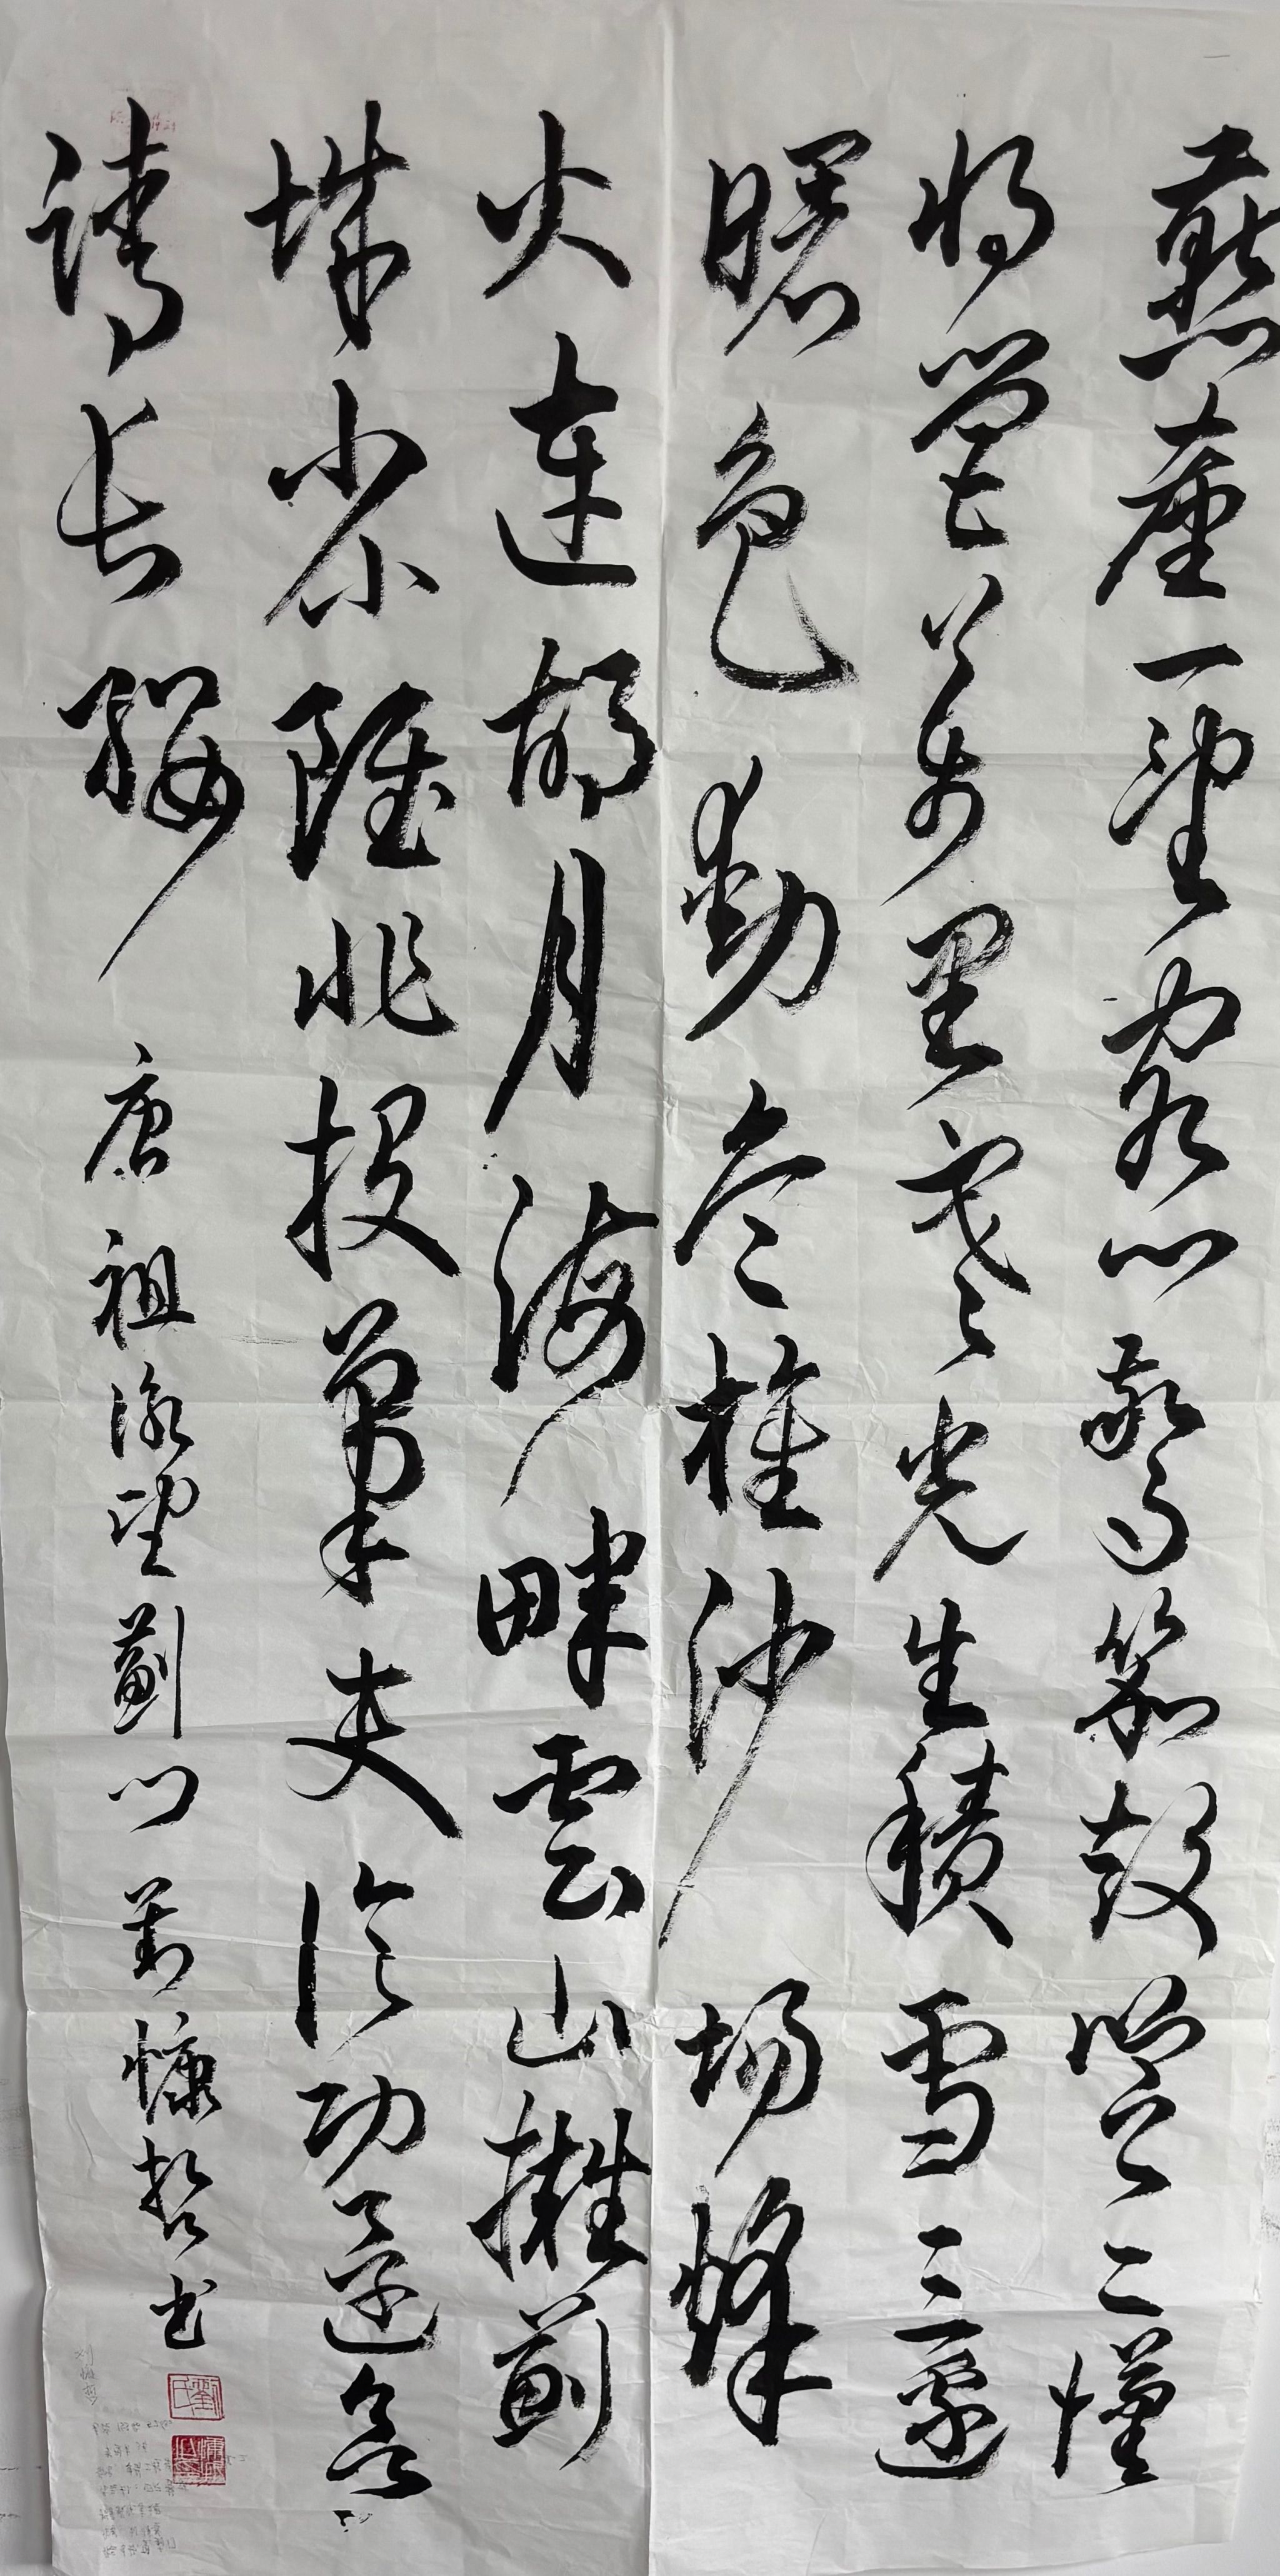 燕臺一望客心驚笳鼓喧〻漢
將營萬里寒光生積雪三邊
曙色動危旌沙場烽
火連胡月海畔雲山擁薊
城少小雖非投筆吏論功還欲
請長纓 唐祖詠望薊門 劉慷哲书
劉氏